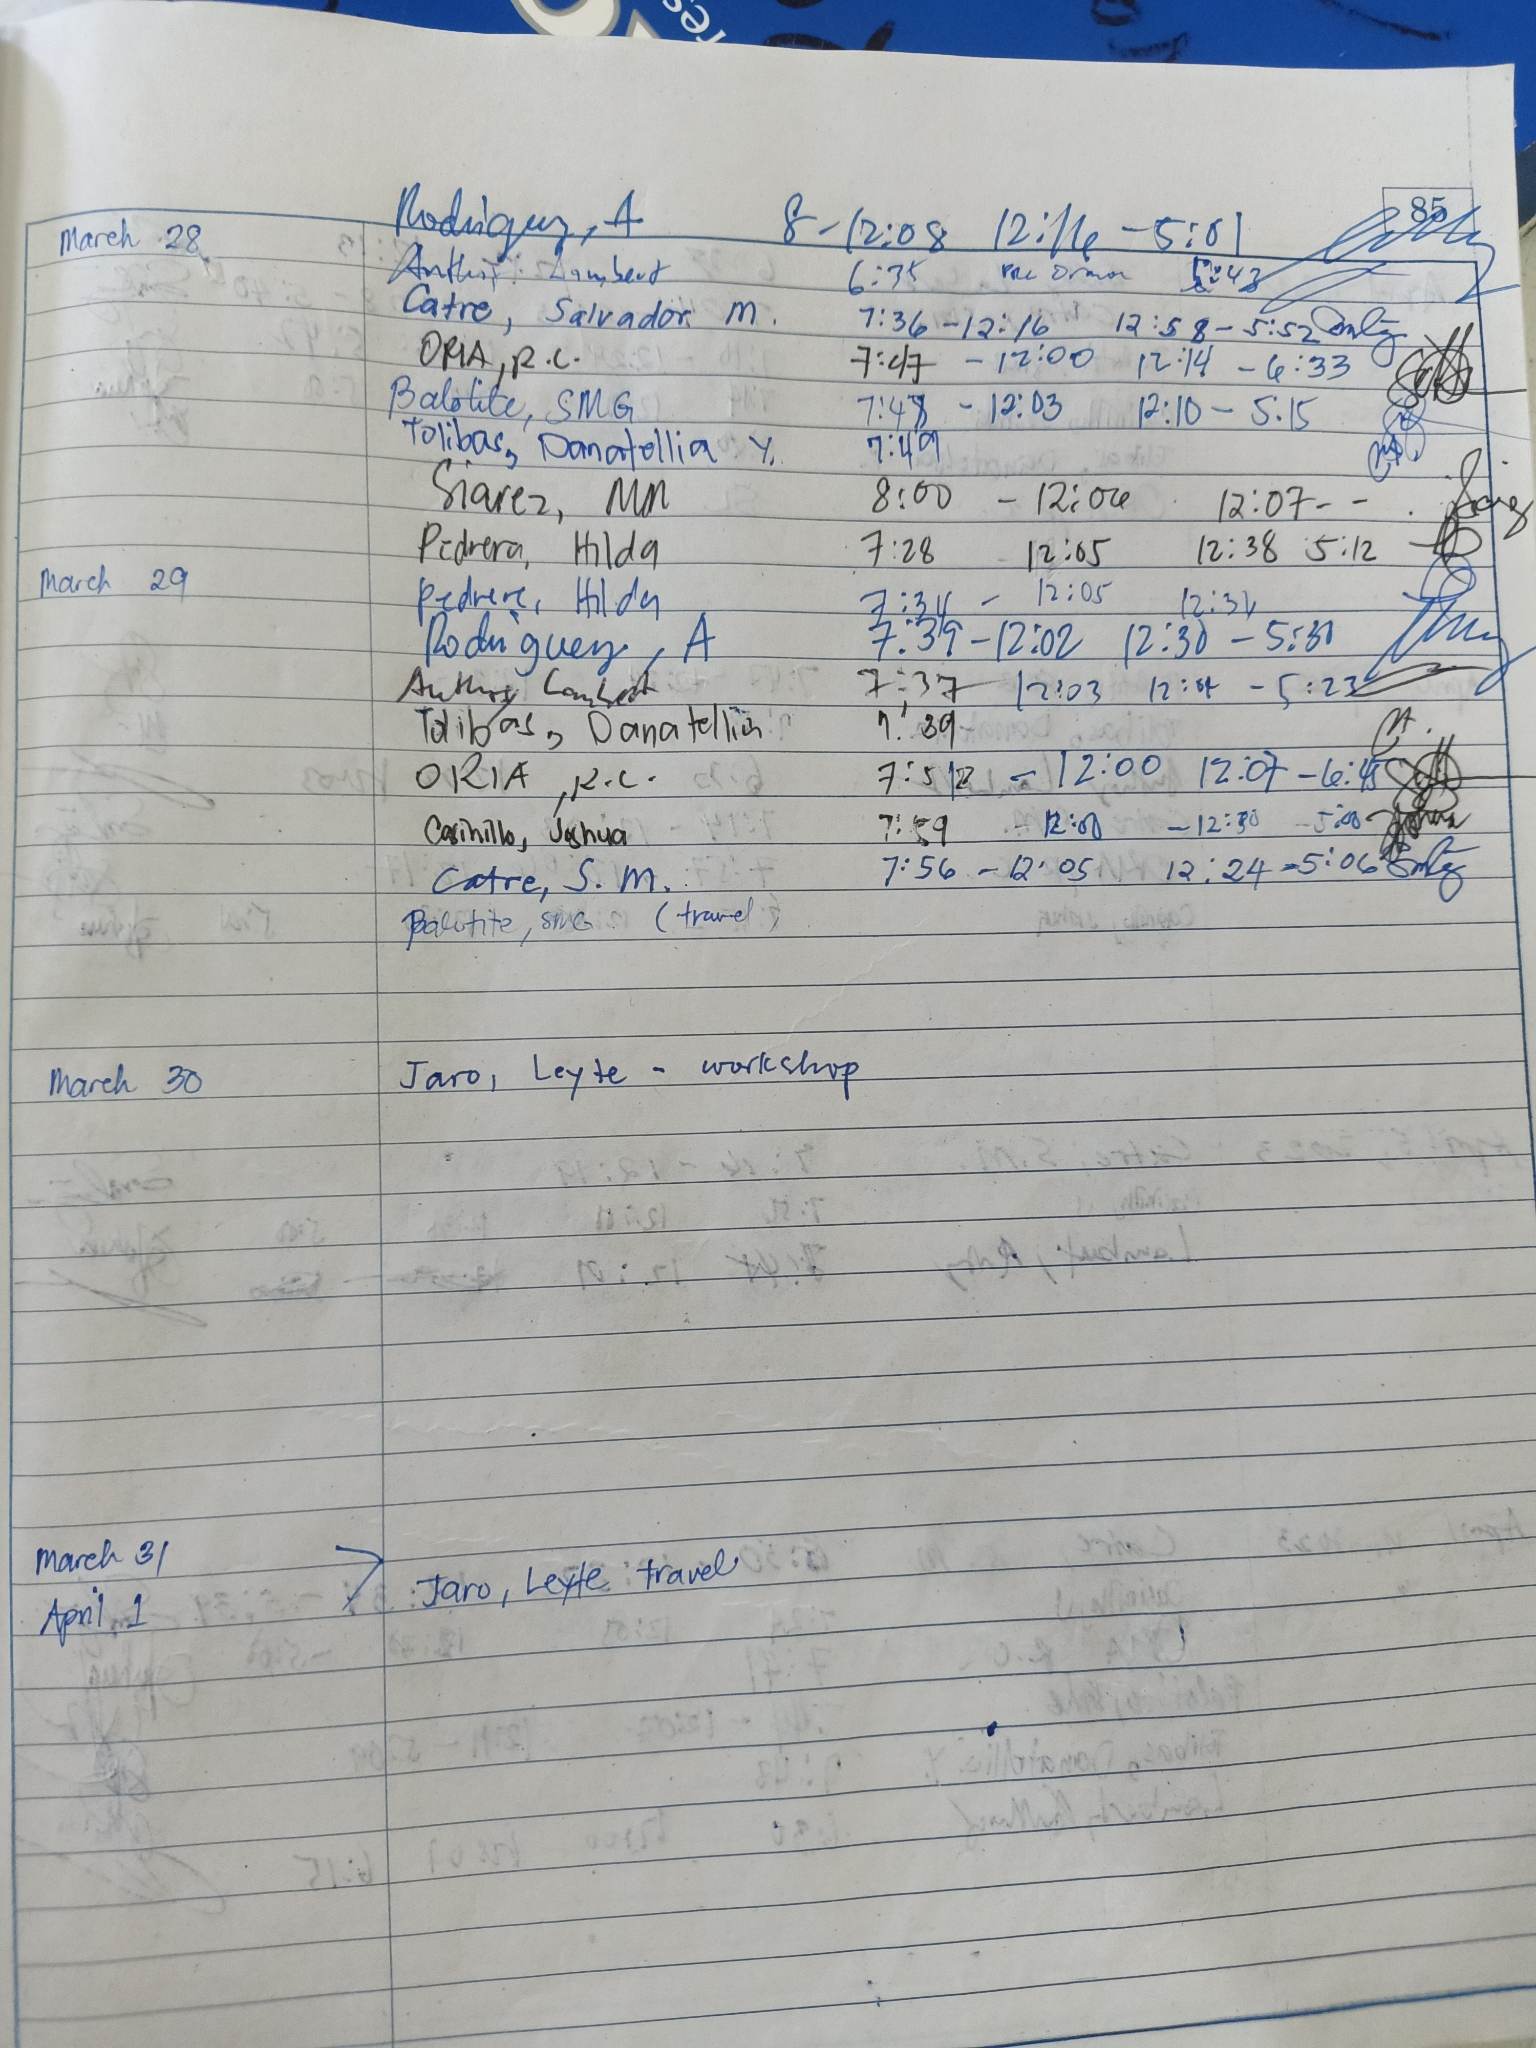 85
Rodriguez, A 8-12:08 12:14 - 5:01
March 28
Lambert 6:35 5:43
Catre, Salvador M. 7:36 - 12:16 12:58 - 5:52
ORIA, R.C. 7:47 - 12:00 12:14 - 6:33
Balotite, SMG 7:48 - 12:03 12:10 - 5:15
Tolibas, Danatellia Y. 7:49
Siarez, MN 8:00 - 12:04 12:07 - -
Pedrera, Hilda 7:28 12:05 12:38 5:12
March 29 Pedrera, Hilda 7:34 - 12:05 12:34
Rodriguez, A 7:39 - 12:02 12:30 - 5:30
Anthony Lambert 7:37 12:03 - 5:23
Tolibas, Danatellia 7:39
ORIA, R.C. - 12:00 12:07 - 6:45
Casinillo, Joshua 7:59 - 12:00 - 12:30 - 5:00
Catre, S. M. 7:56 - 12:05 12:24 - 5:06
Balotite, SMG (travel)
March 30 Jaro, Leyte - workshop
March 31
April 1 Jaro, Leyte travel